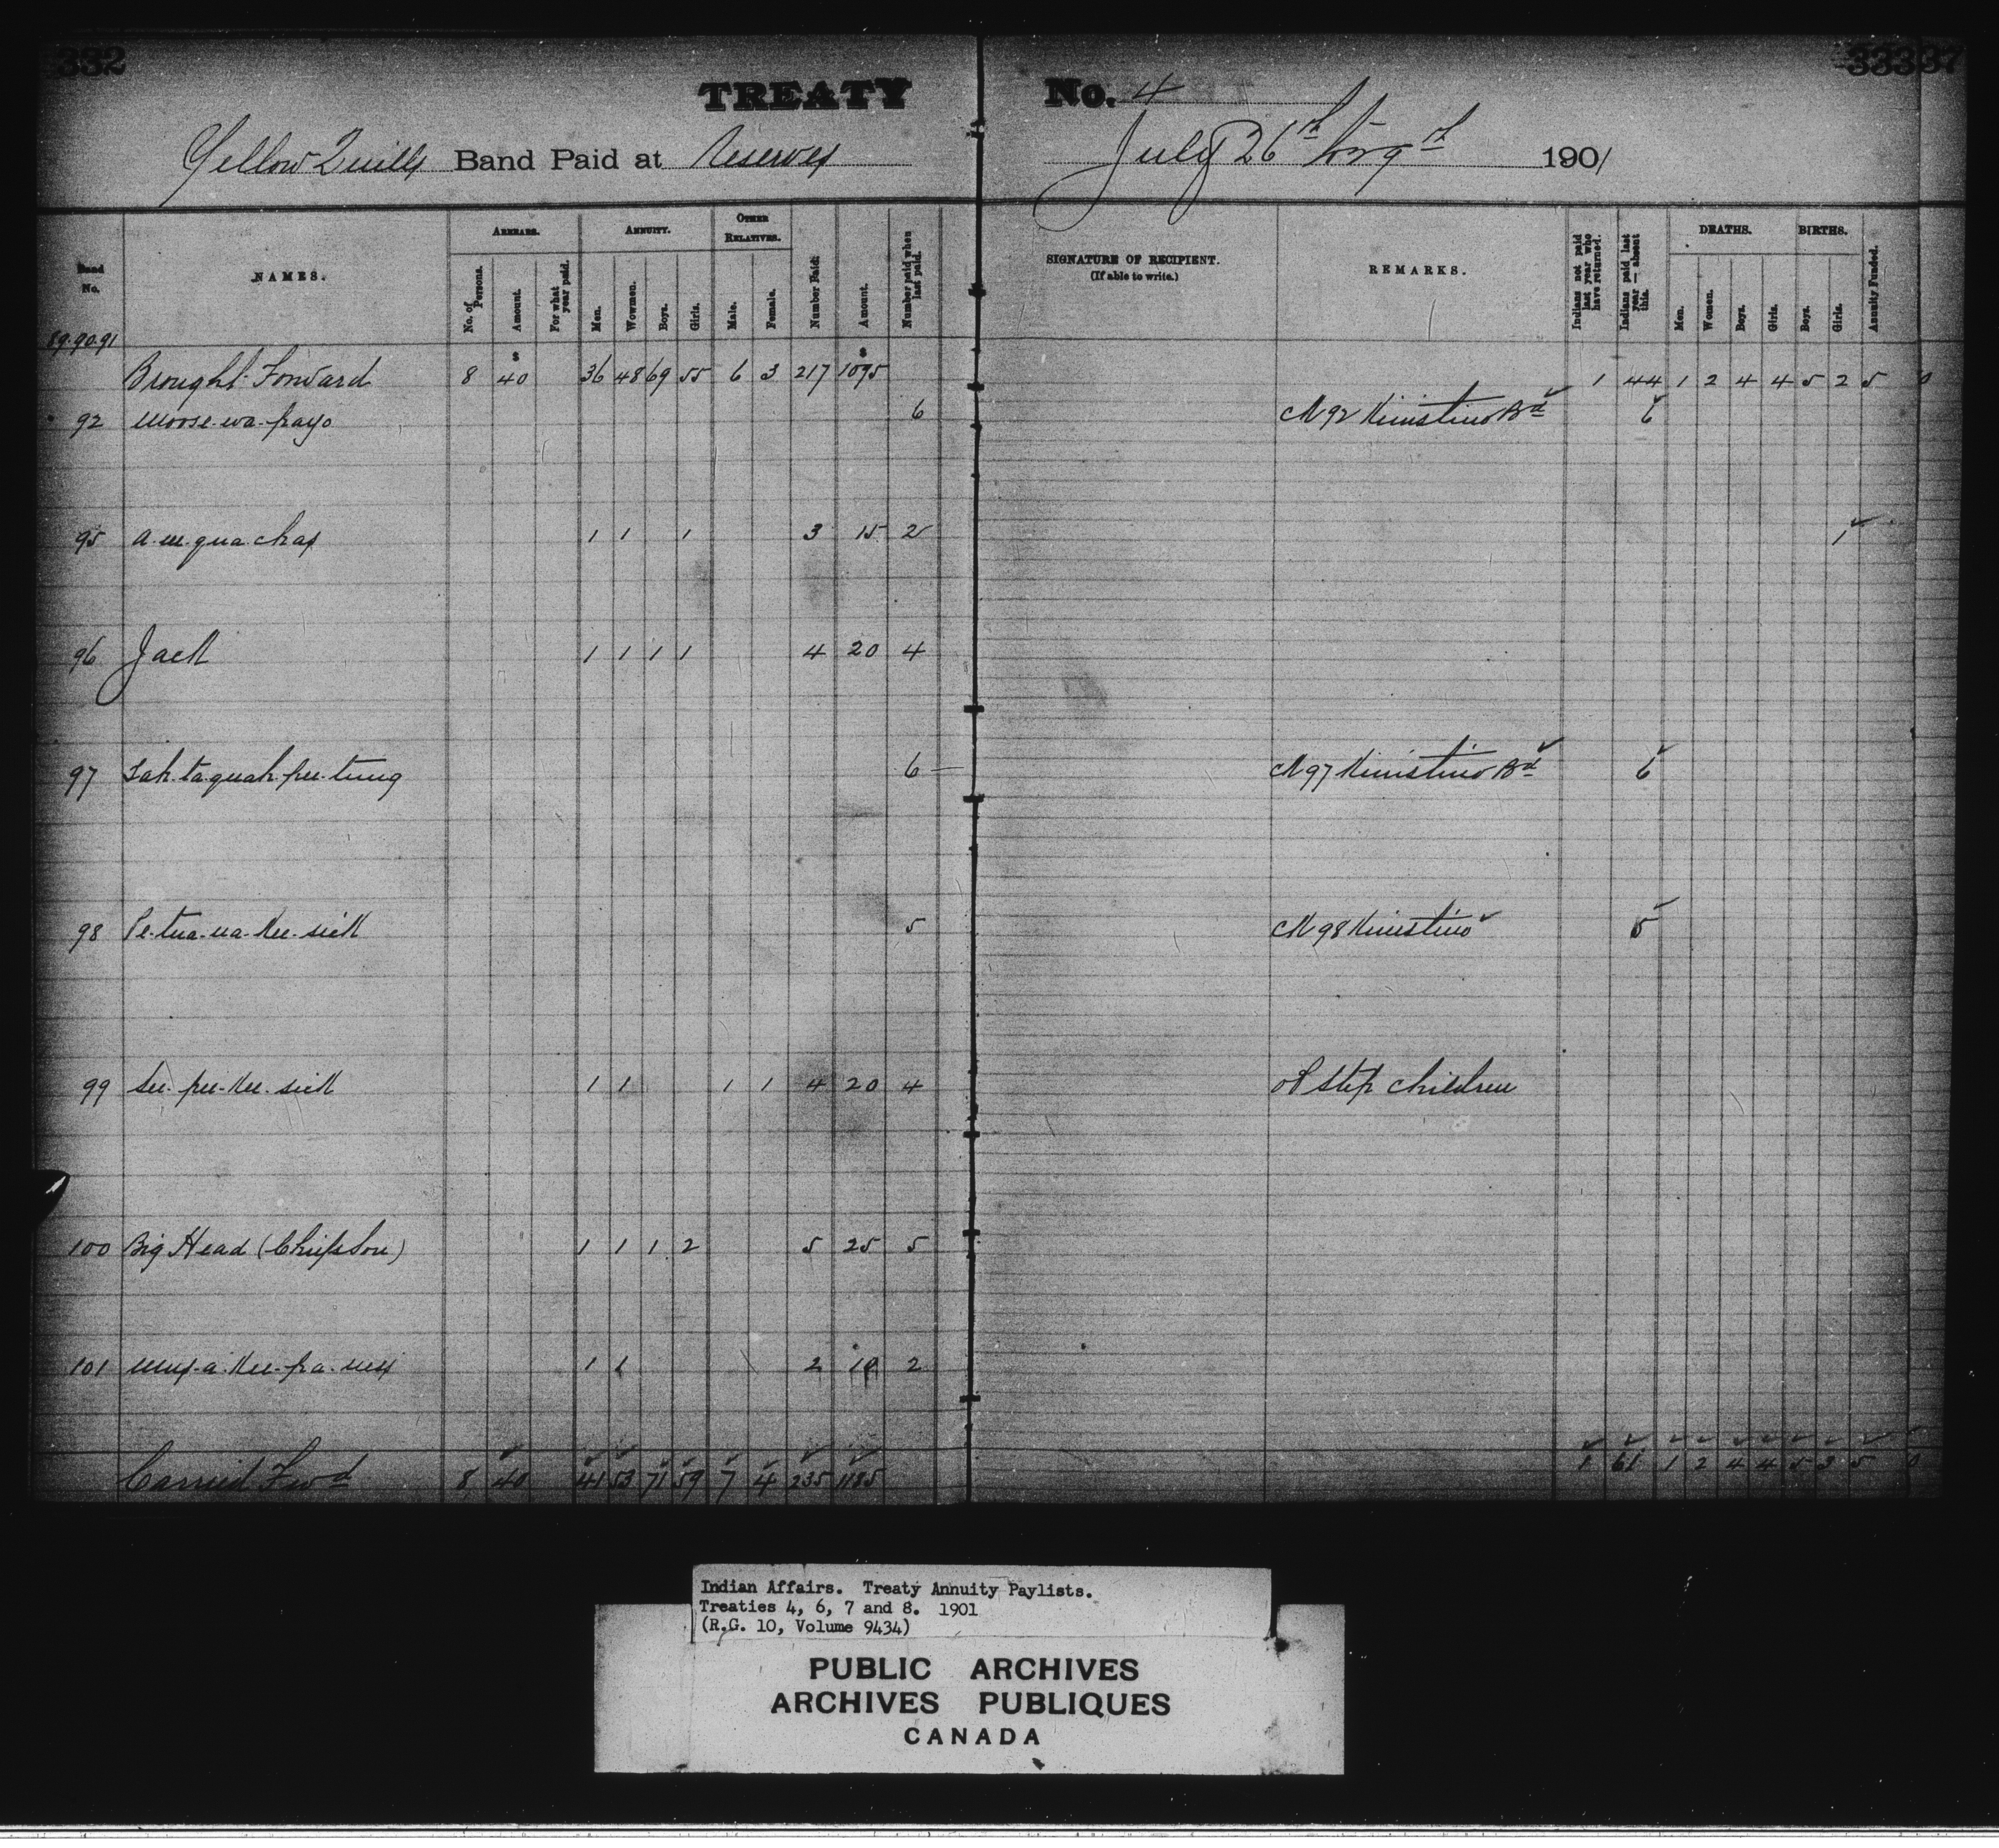 332
333 37
TREATY No. 4
Yellow Quills Band Paid at Reserves July 26th to 29th 1901
Band No.
NAMES.
ARREARS.
No. of Persons.
Amount.
For what year paid.
ANNUITY.
Men.
Women.
Boys.
Girls.
OTHER RELATIVES.
Male.
Female.
Number Paid.
Amount.
Number paid when last paid.
SIGNATURE OF RECIPIENT.
(If able to write.)
REMARKS.
Indians not paid last year who have returned.
Indians paid last year — absent this.
DEATHS.
Men.
Women.
Boys.
Girls.
BIRTHS.
Boys.
Girls.
Annuity Funded.
89.90.91
$ $
Brought Forward 8 40 36 48 69 55 6 3 217 1095 1 44 1 2 4 4 5 2 5 0
92 Moose-wa-payo 6 CK 92 Kinistino Bd 6
95 a.m.qua.chas 1 1 1 3 15 2 1
96 Jack 1 1 1 1 4 20 4
97 6 CK 97 Kinistino Bd 6
98 5 CK 98 Kinistino 5
99 See-pee-kee-sick 1 1 1 1 4 20 4 of step children
100 Big Head (Chiefs Son) 1 1 1 2 5 25 5
101 1 1 2 10 2
Carried Fwd 8 40 41 53 71 59 7 4 235 1185 1 61 1 2 4 4 5 3 5 0
Indian Affairs. Treaty Annuity Paylists.
Treaties 4, 6, 7 and 8. 1901
(R.G. 10, Volume 9434)
PUBLIC ARCHIVES
ARCHIVES PUBLIQUES
CANADA